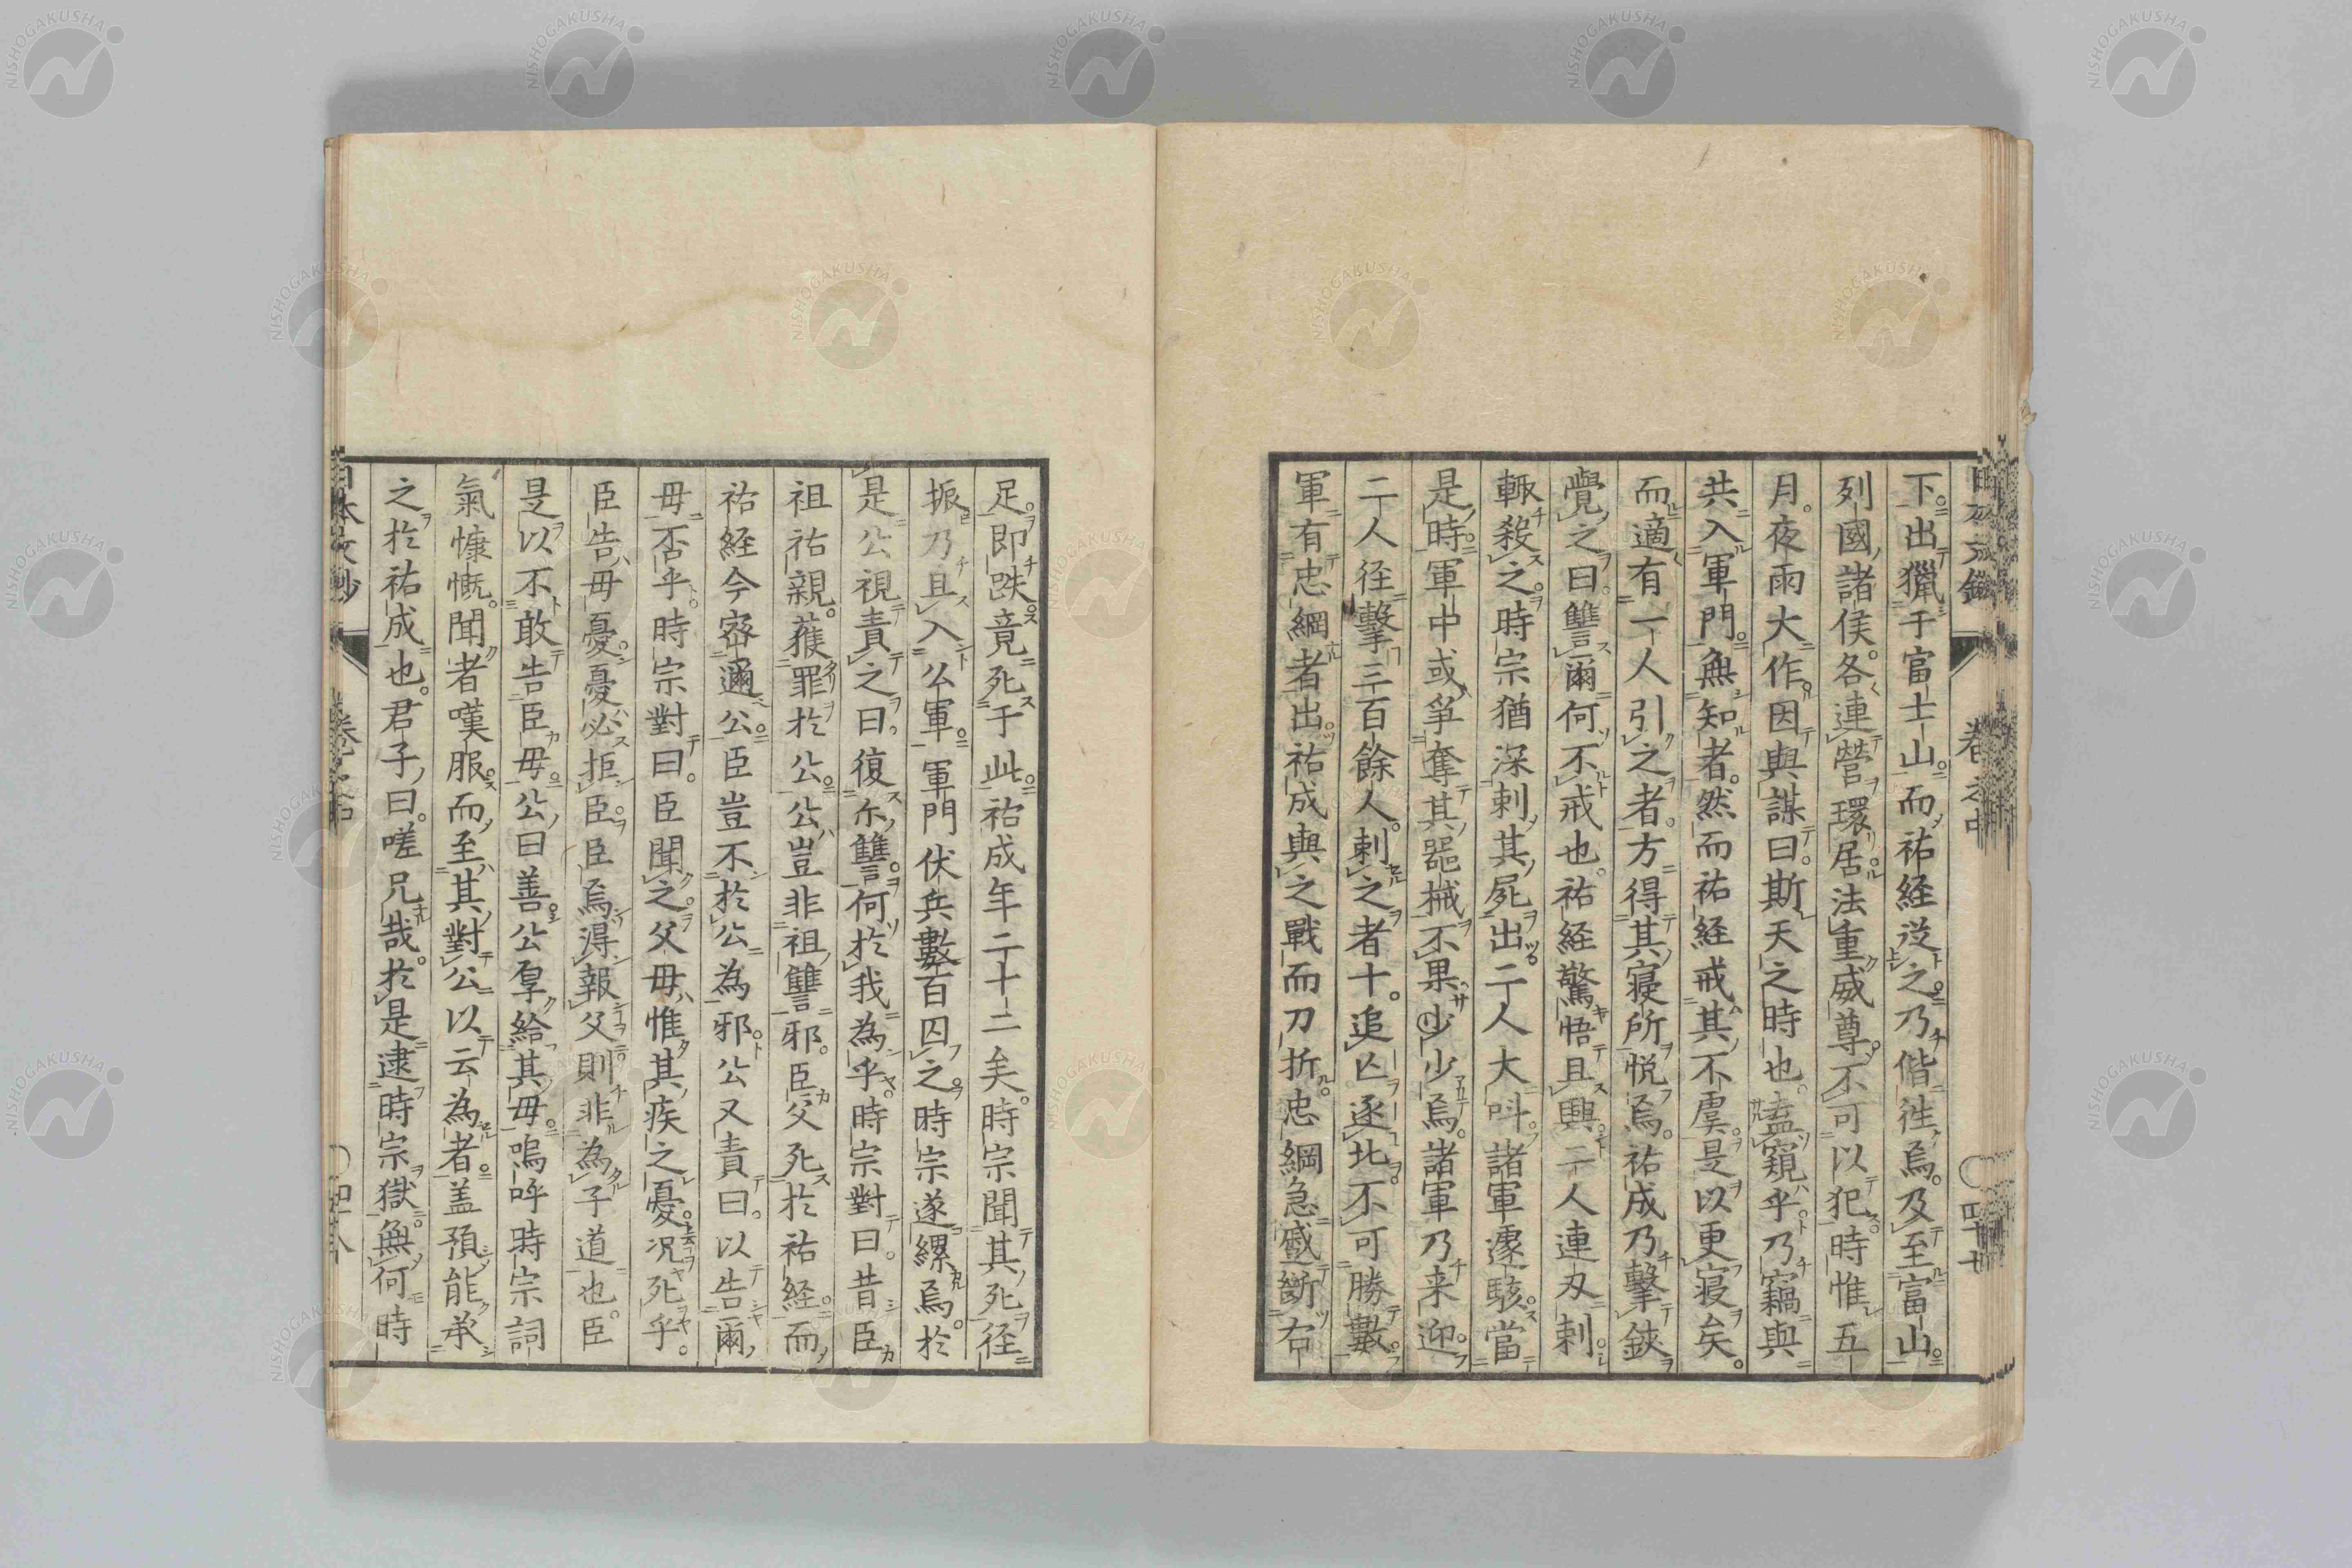 下出獵于富士山而祐経從之乃偕徃焉及至富山
列國諸侯各連營環居法重威尊不可以犯時惟五
月夜雨大作因與謀曰斯天之時也盍窺乎乃竊與
共入軍門無知者然而祐経戒其不虞是以更寝矣
而適有一人引之者方得其寝所悦焉祐成乃擊鋏
覺之曰讐爾何不戒也祐経驚悟且興二人連刃刺
輙殺之時宗猶深刺其屍出二人大呌諸軍遽駭當
是時軍中或爭奪其噐械不果少少焉諸軍乃来迎
二人径擊三百餘人刺之者十追亾逐北不可勝數
軍有忠綱者出祐成與之戰而刀折忠綱急蹙斷右
足即跌竟死于此祐成年二十二矣時宗聞其死径
振乃且入公軍軍門伏兵數百囚之時宗遂縲焉於
是公視責之曰復尓讐何於我為乎時宗對曰昔臣
祖祐親獲罪於公公豈非祖讐邪臣父死於祐経而
祐経今密邇公臣豈不於公為邪公又責曰以告爾
毋否乎時宗對曰臣聞之父毋惟其疾之憂况死乎
臣告毋憂憂必拒臣臣焉得報父則非為子道也臣
是以不敢告臣毋公曰善公厚給其毋嗚呼時宗詞
氣慷慨聞者嘆服而至其對公以云為者盖預能承
之於祐成也君子曰嗟兄哉於是逮時宗獄無何時